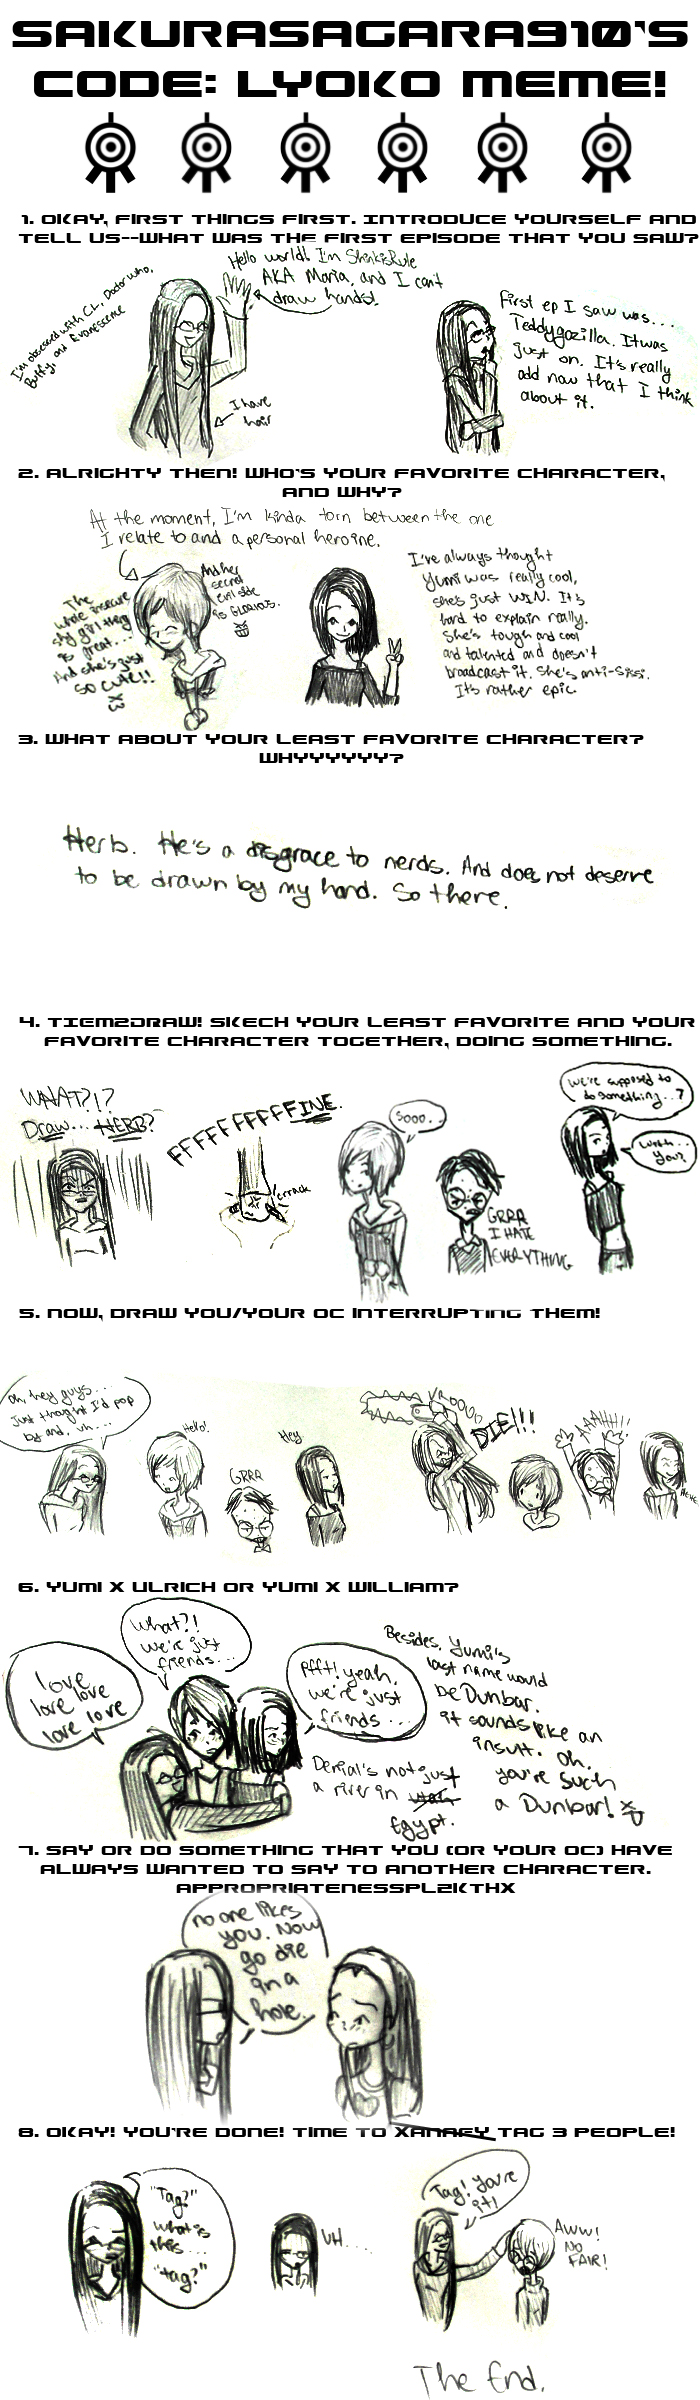 SAKURASAGARA910'S
CODE: LYOKO MEME!
1. OKAY, FIRST THINGS FIRST. INTRODUCE YOURSELF AND
TELL US--WHAT WAS THE FIRST EPISODE THAT YOU SAW?
I'm obsessed with C.L., Doctor Who,
Buffy, and Evanescence
Hello world! I'm ShinkisRule
AKA Maria, and I can't
draw hands!
I have
hair
First ep I saw was...
Teddygozilla. It was
just on. It's really
odd now that I think
about it.
2. ALRIGHTY THEN! WHO'S YOUR FAVORITE CHARACTER,
AND WHY?
At the moment, I'm kinda torn between the one
I relate to and a personal heroine.
The
whole insecure
shy girl thing
is great...
And she's just
SO CUTE!!
And her
secret
evil side
is GLORIOUS.
I've always thought
Yumi was really cool,
she's just WIN. It's
hard to explain really.
She's tough and cool
and talented and doesn't
broadcast it. She's anti-Sissi.
It's rather epic
3. WHAT ABOUT YOUR LEAST FAVORITE CHARACTER?
WHYYYYYY?
Herb. He's a disgrace to nerds. And does not deserve
to be drawn by my hand. So there.
4. TIEM2DRAW! SKECH YOUR LEAST FAVORITE AND YOUR
FAVORITE CHARACTER TOGETHER, DOING SOMETHING.
WHAT?!?
Draw... HERB?
FFFFFFFFFFINE.
crrack
Sooo...
GRRR
I HATE
EVERYTHING
We're supposed to
do something...?
With...
you?
5. NOW, DRAW YOU/YOUR OC INTERRUPTING THEM!
Oh, hey guys...
Just thought I'd pop
by and, uh...
Hello!
GRRR
Hey
VROOUUU
DIE!!!
AAAHH!!
Hehe
6. YUMI X ULRICH OR YUMI X WILLIAM?
love
love love
love love
What?!
we're just
friends...
pfft! yeah,
we're just
friends...
Denial's not just
a river in
Egypt.
Besides, Yumi's
last name would
be Dunbar.
it sounds like an
insult. Oh,
you're such
a Dunbar! XD
7. SAY OR DO SOMETHING THAT YOU (OR YOUR OC) HAVE
ALWAYS WANTED TO SAY TO ANOTHER CHARACTER.
APPROPRIATENESSPLZKTHX
no one likes
you. Now
go die
in a
hole.
8. OKAY! YOU'RE DONE! TIME TO XANAFY TAG 3 PEOPLE!
"Tag?"
what is
this...
"tag?"
UH....
Tag! You're
it!
AWW!
NO
FAIR!
The End.